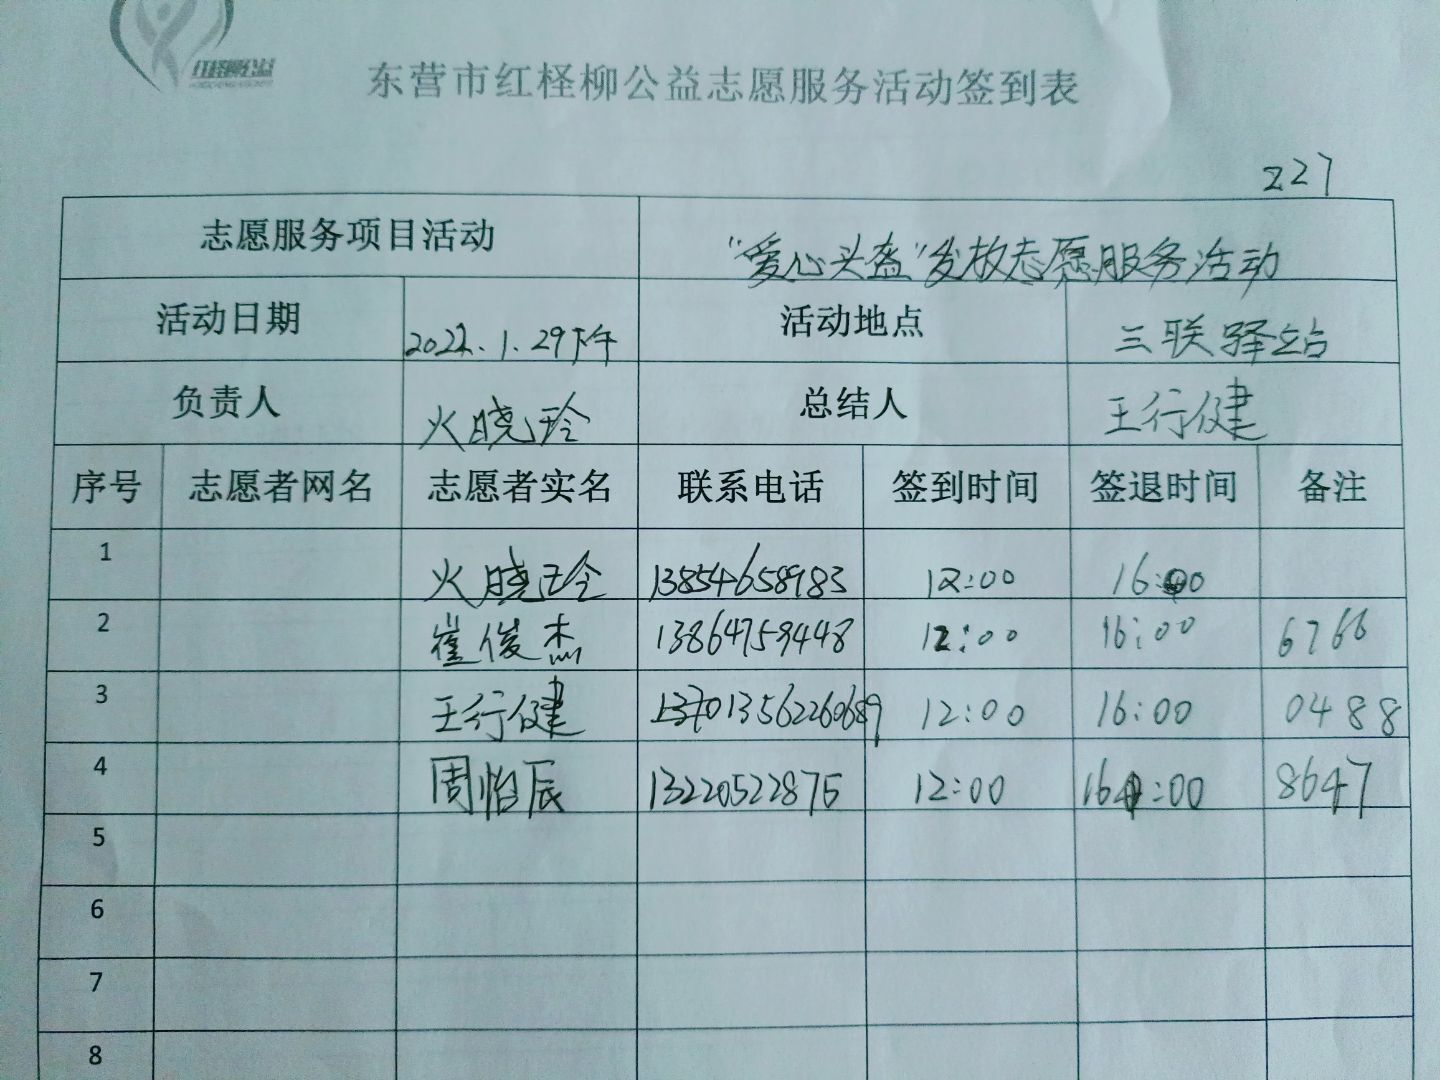 红柽柳公益
东营市红柽柳公益志愿服务活动签到表
227
志愿服务项目活动 “爱心头盔”发放志愿服务活动
活动日期 2022.1.29下午 活动地点 三联驿站
负责人 火晓玲 总结人 王行健
序号 志愿者网名 志愿者实名 联系电话 签到时间 签退时间 备注
1 火晓玲 13854658983 12:00 16:00
2 崔俊杰 13864759448 12:00 16:00 6766
3 王行健 13562260689 12:00 16:00 0488
4 周怡辰 13220522875 12:00 16:00 8647
5
6
7
8